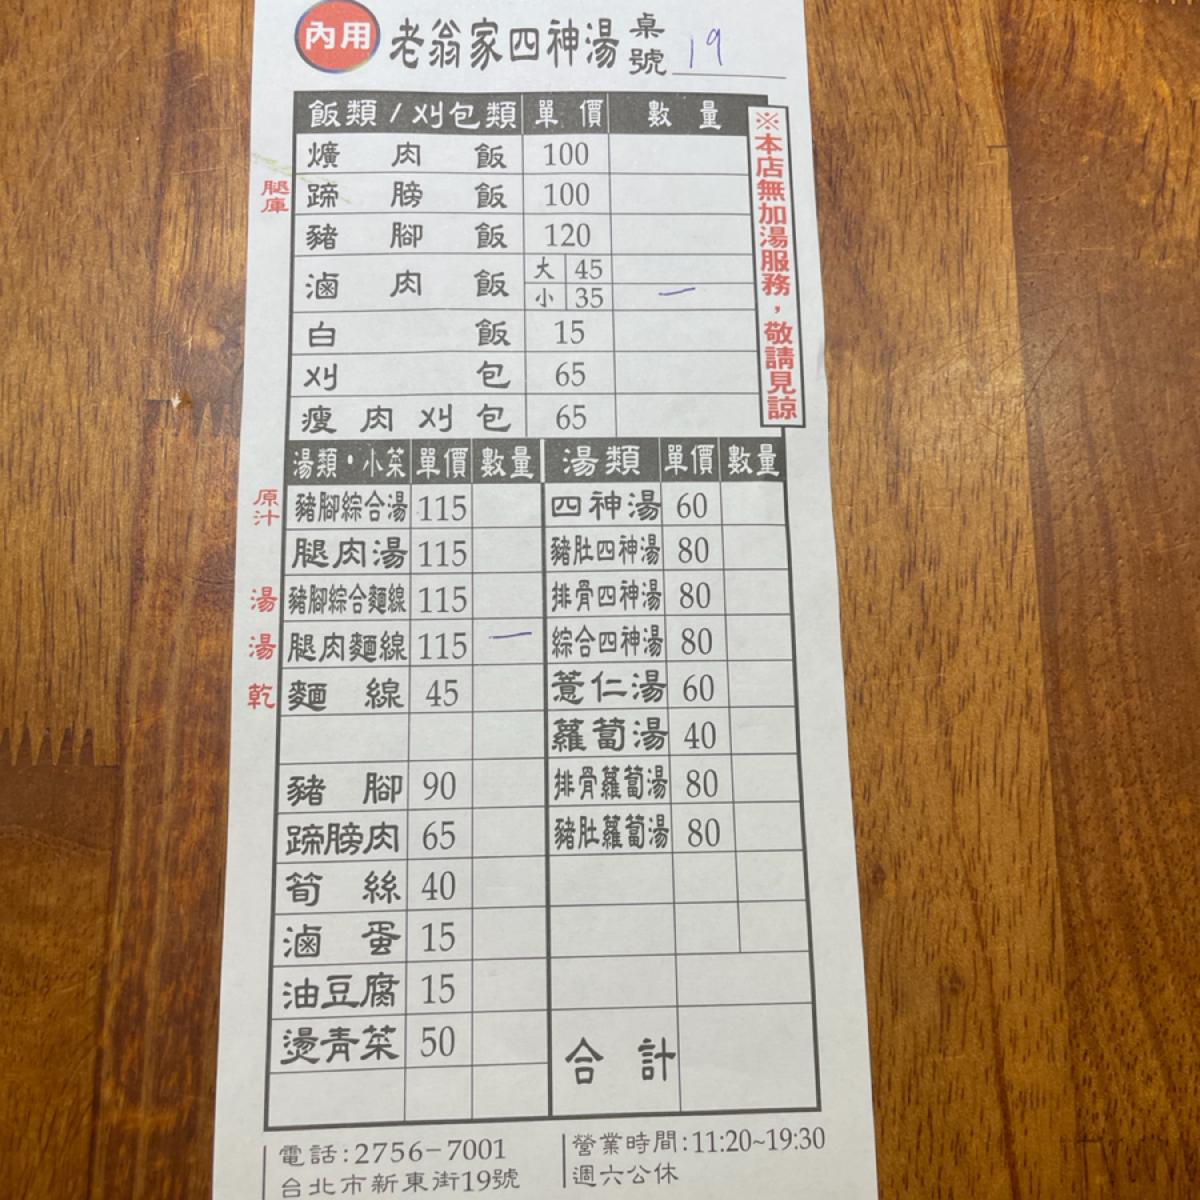 內用 老翁家四神湯 桌號 19
飯類/刈包類 單價 數量
爌肉飯 100
腿庫 蹄膀飯 100
豬腳飯 120
滷肉飯 大 45
小 35 一
白飯 15
刈包 65
瘦肉刈包 65
※本店無加湯服務，敬請見諒
湯類·小菜 單價 數量 湯類 單價 數量
原汁 豬腳綜合湯 115 四神湯 60
腿肉湯 115 豬肚四神湯 80
湯 豬腳綜合麵線 115 排骨四神湯 80
湯 腿肉麵線 115 一 綜合四神湯 80
乾 麵線 45 薏仁湯 60
蘿蔔湯 40
豬腳 90 排骨蘿蔔湯 80
蹄膀肉 65 豬肚蘿蔔湯 80
筍絲 40
滷蛋 15
油豆腐 15
燙青菜 50 合計
電話:2756-7001 營業時間:11:20~19:30
台北市新東街19號 週六公休